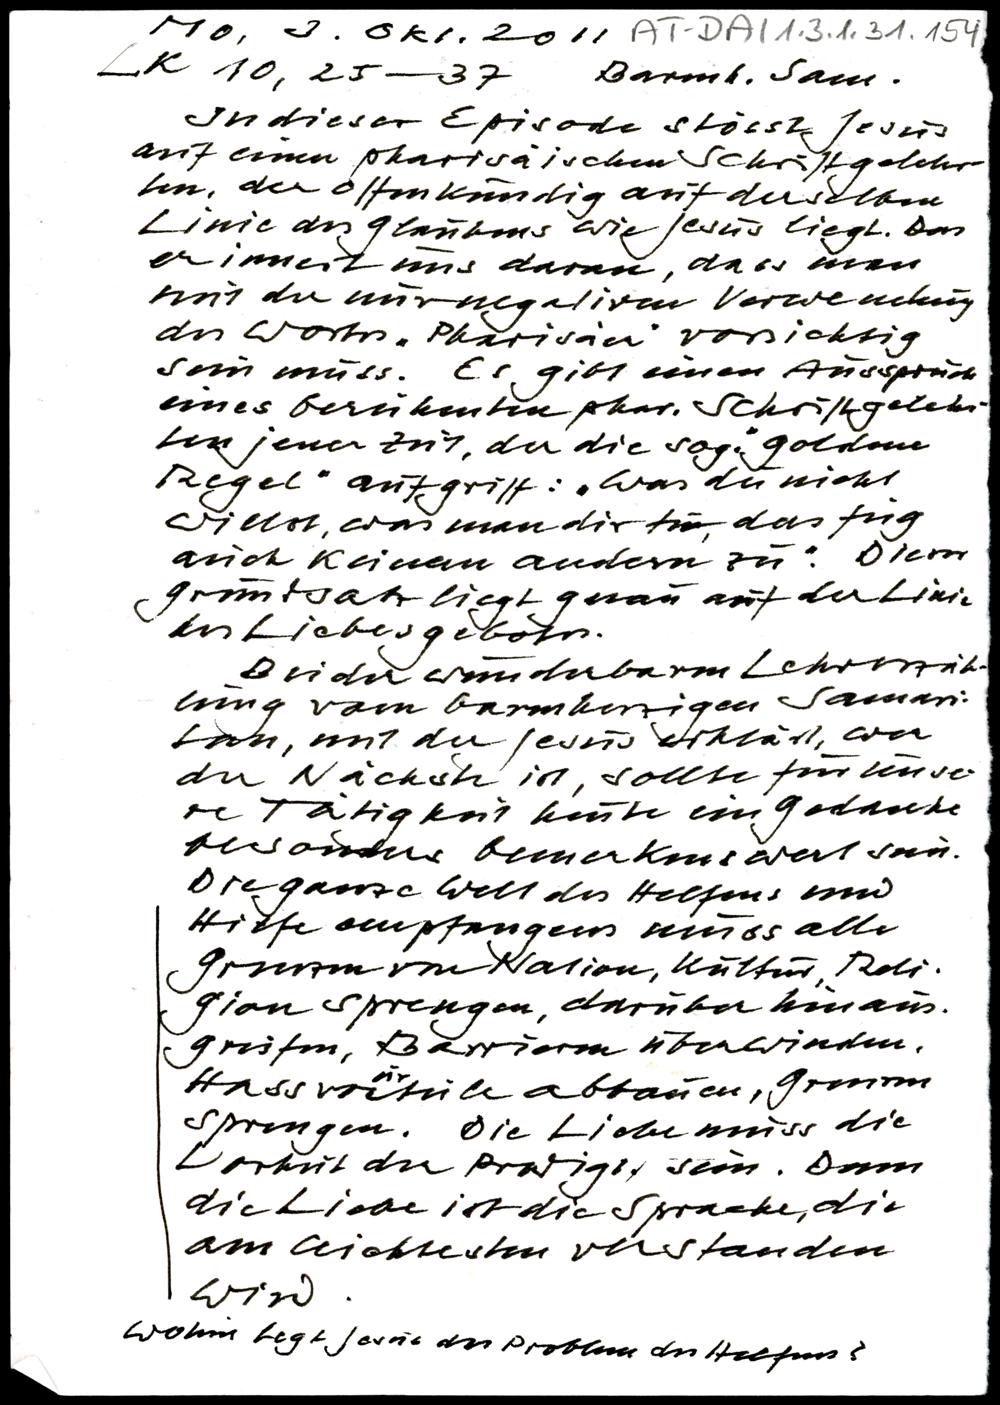 Mo, 3. Okt. 2011 AT-DAI 1.3.1.31.154
LK 10, 25—37 Barmh. Sam.
In dieser Episode stösst Jesus
auf einen pharisäischen Schriftgelehr-
ten, der offenkundig auf derselben
Linie des Glaubens wie Jesus liegt. Das
erinnert uns daran, dass man
mit der nur negativen Verwendung
des Wortes „Pharisäer" vorsichtig
sein muss. Es gibt einen Ausspruch
eines berühmten phar. Schriftgelehr-
ten jener Zeit, der die sog. "Goldene
Regel" aufgriff: „Was du nicht
willst, was man dir tu, das füg
auch keinem andern zu". Dieser
Grundsatz liegt genau auf der Linie
des Liebesgebotes.
Bei der wunderbaren Lehrerzäh-
lung vom barmherzigen Samari-
tan, mit der Jesus erklärt, wer
der Nächste ist, sollte für unse-
re Tätigkeit heute ein Gedanke
besonders bemerkenswert sein.
Die ganze Welt des Helfens und
Hilfe empfangens muss alle
Grenzen von Nation, Kultur, Reli-
gion sprengen, darüber hinaus-
greifen, Barrieren überwinden,
Hassvorurteile abbauen, Grenzen
sprengen. Die Liebe muss die
der Predigt sein. Denn
die Liebe ist die Sprache, die
am leichtesten verstanden
wird.
Wohin legt Jesus das Problem des Helfens?